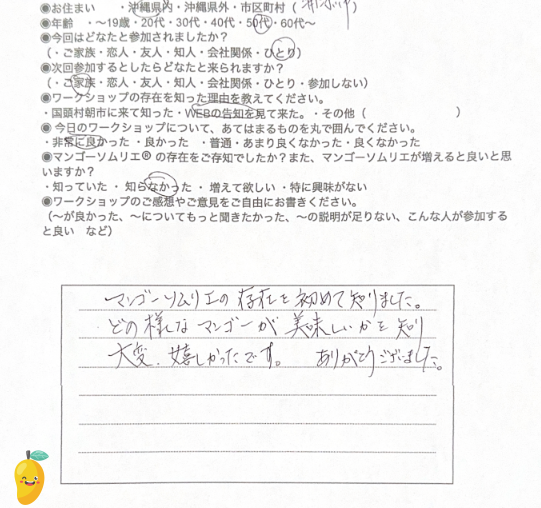 ◉お住まい ・沖縄県内・沖縄県外・市区町村（ ）
◉年齢 ・～19歳・20代・30代・40代・50代・60代～
◉今回はどなたと参加されましたか？
（・ご家族・恋人・友人・知人・会社関係・ひとり）
◉次回参加するとしたらどなたと来られますか？
（・ご家族・恋人・友人・知人・会社関係・ひとり・参加しない）
◉ワークショップの存在を知った理由を教えてください。
・国頭村朝市に来て知った・WEBの告知を見て来た。・その他（ ）
◉ 今日のワークショップについて、あてはまるものを丸で囲んでください。
・非常に良かった ・良かった ・普通・あまり良くなかった・良くなかった
◉マンゴーソムリエ®の存在をご存知でしたか？また、マンゴーソムリエが増えると良いと思
いますか？
・知っていた ・ 知らなかった ・ 増えて欲しい ・特に興味がない
◉ワークショップのご感想やご意見をご自由にお書きください。
（～が良かった、～についてもっと聞きたかった、～の説明が足りない、こんな人が参加する
と良い など）
マンゴーソムリエの存在を初めて知りました。
どの様なマンゴーが美味しいかを知り
大変、嬉しかったです。 ありがとうございました。